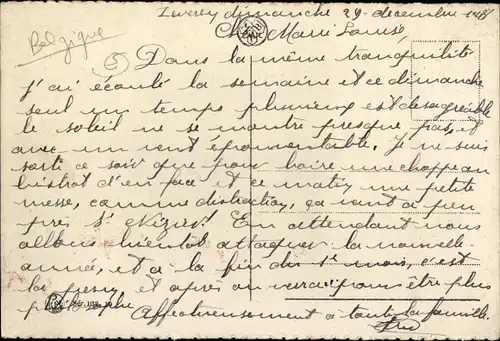 Belgique
dimanche 29 décembre 1918
Ch Marie Louise,
(5) Dans la même tranquilité
j'ai écoulé la semaine et ce dimanche
seul un temps pluvieux est desagréable
le soleil ne se montre presque pas, et
avec un vent épouvantable. Je ne suis
sorti ce soir que pour boire une choppe au
bistrot d'en face et ce matin une petite
messe, comme distraction, ça vaut à peu
près St Nizier! En attendant nous
allons bientot attaquer la nouvelle
année, et à la fin du 1er mois, c'est
la et après on verra pour être plus
Affectueusement à toute la famille.